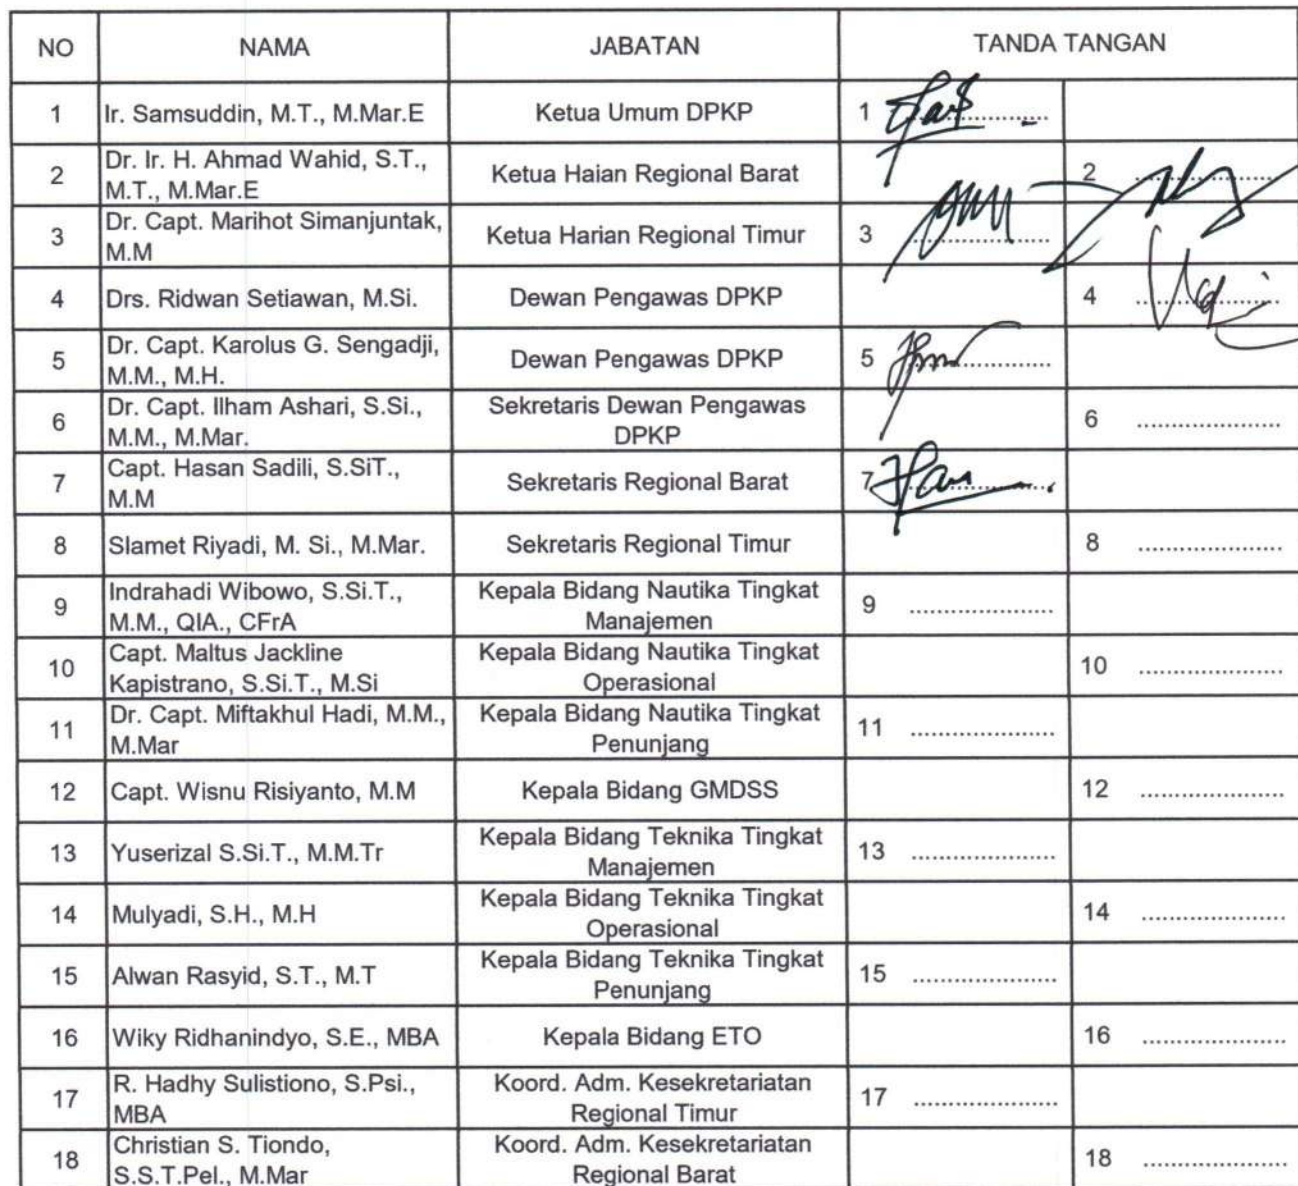 NO NAMA JABATAN TANDA TANGAN
1 Ir. Samsuddin, M.T., M.Mar.E Ketua Umum DPKP 1 ..............
2 Dr. Ir. H. Ahmad Wahid, S.T.,
M.T., M.Mar.E Ketua Haian Regional Barat 2 ..............
3 Dr. Capt. Marihot Simanjuntak,
M.M Ketua Harian Regional Timur 3 ..............
4 Drs. Ridwan Setiawan, M.Si. Dewan Pengawas DPKP 4 ..............
5 Dr. Capt. Karolus G. Sengadji,
M.M., M.H. Dewan Pengawas DPKP 5 ..............
6 Dr. Capt. Ilham Ashari, S.Si.,
M.M., M.Mar. Sekretaris Dewan Pengawas
DPKP 6 ..............
7 Capt. Hasan Sadili, S.SiT.,
M.M Sekretaris Regional Barat 7 ..............
8 Slamet Riyadi, M. Si., M.Mar. Sekretaris Regional Timur 8 ..............
9 Indrahadi Wibowo, S.Si.T.,
M.M., QIA., CFrA Kepala Bidang Nautika Tingkat
Manajemen 9 ..............
10 Capt. Maltus Jackline
Kapistrano, S.Si.T., M.Si Kepala Bidang Nautika Tingkat
Operasional 10 ..............
11 Dr. Capt. Miftakhul Hadi, M.M.,
M.Mar Kepala Bidang Nautika Tingkat
Penunjang 11 ..............
12 Capt. Wisnu Risiyanto, M.M Kepala Bidang GMDSS 12 ..............
13 Yuserizal S.Si.T., M.M.Tr Kepala Bidang Teknika Tingkat
Manajemen 13 ..............
14 Mulyadi, S.H., M.H Kepala Bidang Teknika Tingkat
Operasional 14 ..............
15 Alwan Rasyid, S.T., M.T Kepala Bidang Teknika Tingkat
Penunjang 15 ..............
16 Wiky Ridhanindyo, S.E., MBA Kepala Bidang ETO 16 ..............
17 R. Hadhy Sulistiono, S.Psi.,
MBA Koord. Adm. Kesekretariatan
Regional Timur 17 ..............
18 Christian S. Tiondo,
S.S.T.Pel., M.Mar Koord. Adm. Kesekretariatan
Regional Barat 18 ..............